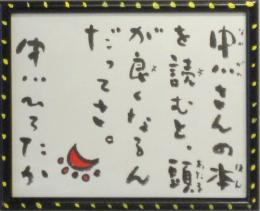 中川さんの本
を読むと、頭
が良くなるん
だってさ。
中川ひろたか